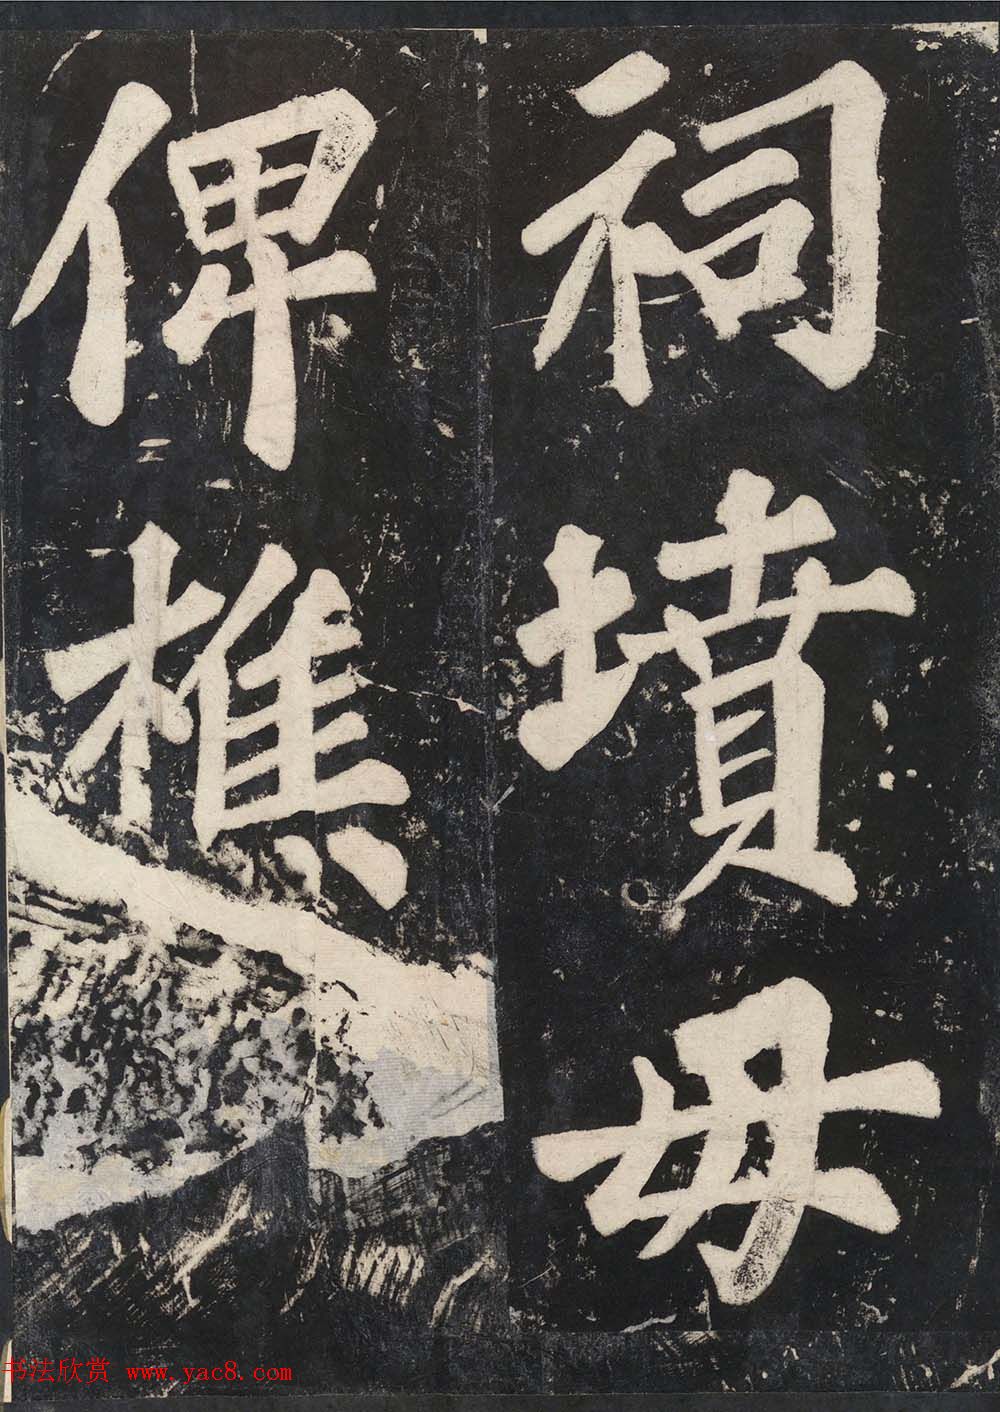 祠墳毋
俾樵
书法欣赏 www.yac8.com